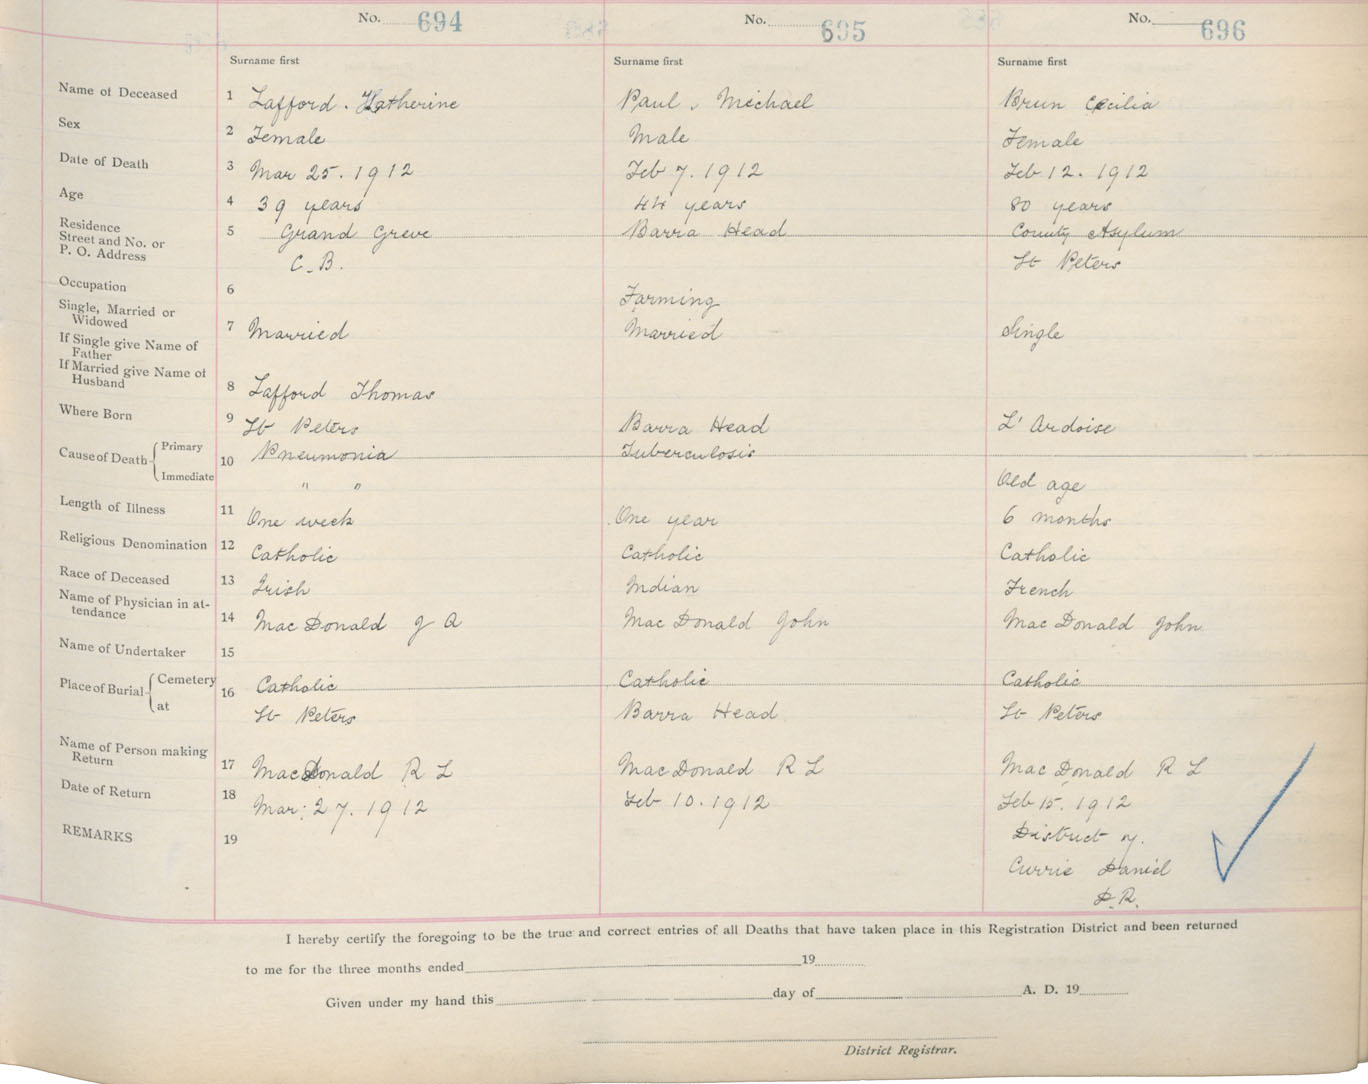 No. 694 No. 695 No. 696
Surname first Surname first Surname first
Name of Deceased 1 Lafford. Katherine Paul, Michael Brun Cecilia
Sex 2 Female Male Female
Date of Death 3 Mar 25. 1912 Feb 7. 1912 Feb 12. 1912
Age 4 39 years 44 years 80 years
Residence
Street and No. or 5 Grand Greve Barra Head County Asylum
P. O. Address C. B. St Peters
Occupation 6 Farming
Single, Married or
Widowed 7 Married Married Single
If Single give Name of
Father
If Married give Name of
Husband 8 Lafford Thomas
Where Born 9 St Peters Barra Head L' Ardoise
Cause of Death Primary 10 Pneumonia Tuberculosis
Immediate " " Old age
Length of Illness 11 One week One year 6 months
Religious Denomination 12 Catholic Catholic Catholic
Race of Deceased 13 Irish Indian French
Name of Physician in at-
tendance 14 Mac Donald J A Mac Donald John Mac Donald John
Name of Undertaker 15
Place of Burial Cemetery 16 Catholic Catholic Catholic
at St Peters Barra Head St Peters
Name of Person making
Return 17 MacDonald R L MacDonald R L Mac Donald R L
Date of Return 18 Mar. 27. 1912 Feb 10. 1912 Feb 15. 1912
REMARKS 19 District of.
Currie Daniel
D. R.
I hereby certify the foregoing to be the true and correct entries of all Deaths that have taken place in this Registration District and been returned
to me for the three months ended 19
Given under my hand this day of A. D. 19
District Registrar.